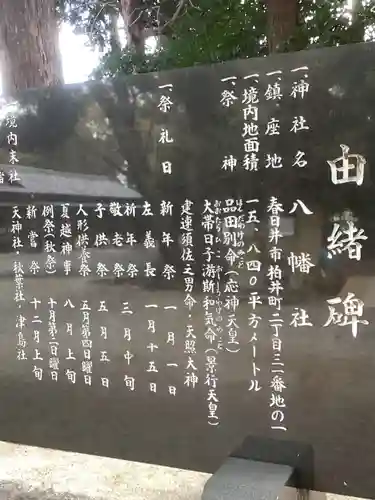 由緒碑
一、神社名 八幡社
一、鎮座地 春日井市柏井町二丁目三一番地の一
一、境内地面積 一五、八四〇平方メートル
一、祭神 品田別命(応神天皇)
ほむだわけのみこと
大帯日子淤斯和気命(景行天皇)
おおたらしひこおしろわけのみこと
建速須佐之男命・天照大神
一、祭礼日 新年祭 一月一日
左義長 一月十五日
祈年祭 三月中旬
敬老祭
子供祭 五月五日
人形供養祭 五月第四日曜日
夏越神事 八月上旬
例祭(秋祭) 十月第二日曜日
新嘗祭 十二月上旬
境内末社 天神社・秋葉社・津島社